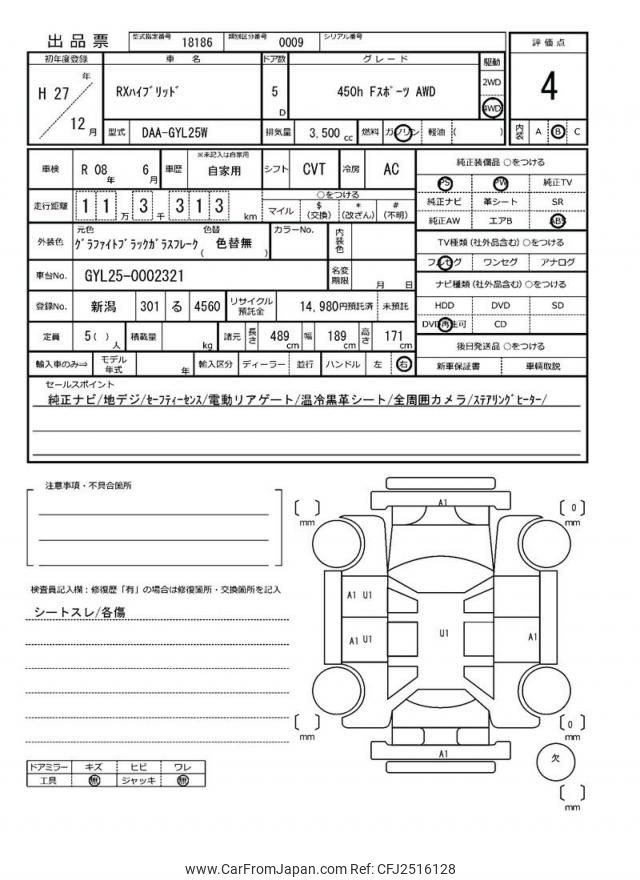 出品票 型式指定番号 18186 類別区分番号 0009 シリアル番号
評価点
4
初年度登録 車 名 ドア数 グレード 駆動
H 27 年 12 月
RXハイブリッド 5 D 450h Fスポーツ AWD
2WD
4WD
型式 DAA-GYL25W 排気量 3,500 cc 燃料 ガソリン 軽油 ( ) 内装 A B C
車検 R 08 年 6 月 車歴 ※未記入は自家用 自家用 シフト CVT 冷房 AC
走行距離 1 1 万 3 千 3 1 3 km
○をつける
マイル $ (交換) * (改ざん) # (不明)
外装色 元色 グラファイトブラックガラスフレーク 色替 ( 色替無 ) カラーNo. 内装色
車台No. GYL25-0002321 名変期限 月 日
登録No. 新潟 301 る 4560 リサイクル預託金 14,980円預託済 未預託
定員 5( ) 人 積載量 kg 諸元 長さ 489 cm 幅 189 cm 高さ 171 cm
輸入車のみ⇒ モデル年式 年 輸入区分 ディーラー 並行 ハンドル 左 右
純正装備品 ○をつける
PS PW 純正TV
純正ナビ 革シート SR
純正AW エアB ABS
TV種類(社外品含む) ○をつける
フルセグ ワンセグ アナログ
ナビ種類(社外品含む) ○をつける
HDD DVD SD
DVD再生可 CD
後日発送品 ○をつける
新車保証書 車輌取説
セールスポイント
純正ナビ/地デジ/セーフティーセンス/電動リアゲート/温冷黒革シート/全周囲カメラ/ステアリングヒーター/
注意事項・不具合箇所
検査員記入欄：修復歴「有」の場合は修復箇所・交換箇所を記入
シートスレ/各傷
ドアミラー キズ ヒビ ワレ
工具 無 ジャッキ 無
A1
[ ] mm
[ 0 ] mm
A1 U1
A1 U1
U1
A1
[ ] mm
[ 0 ] mm
A1
欠
[ ] mm
www.CarFromJapan.com Ref: CFJ2516128